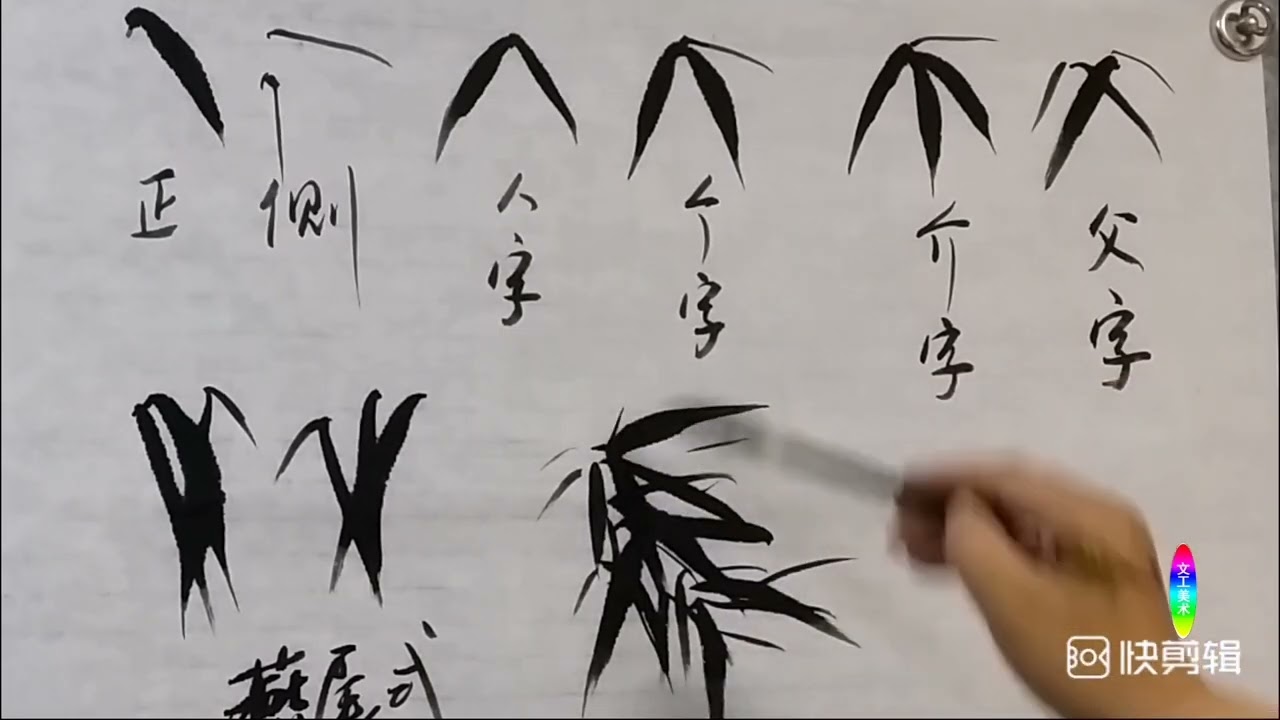 正
側
人字
个字
介字
父字
燕尾式
文工美术
快剪辑